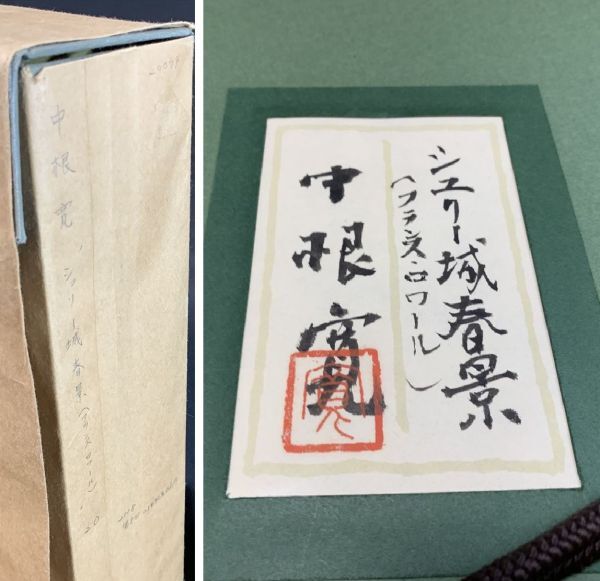 中根寛
シュリー城春景(フランス・ロワール)
20
シュリー城春景
(フランス・ロワール)
中根寛
寛